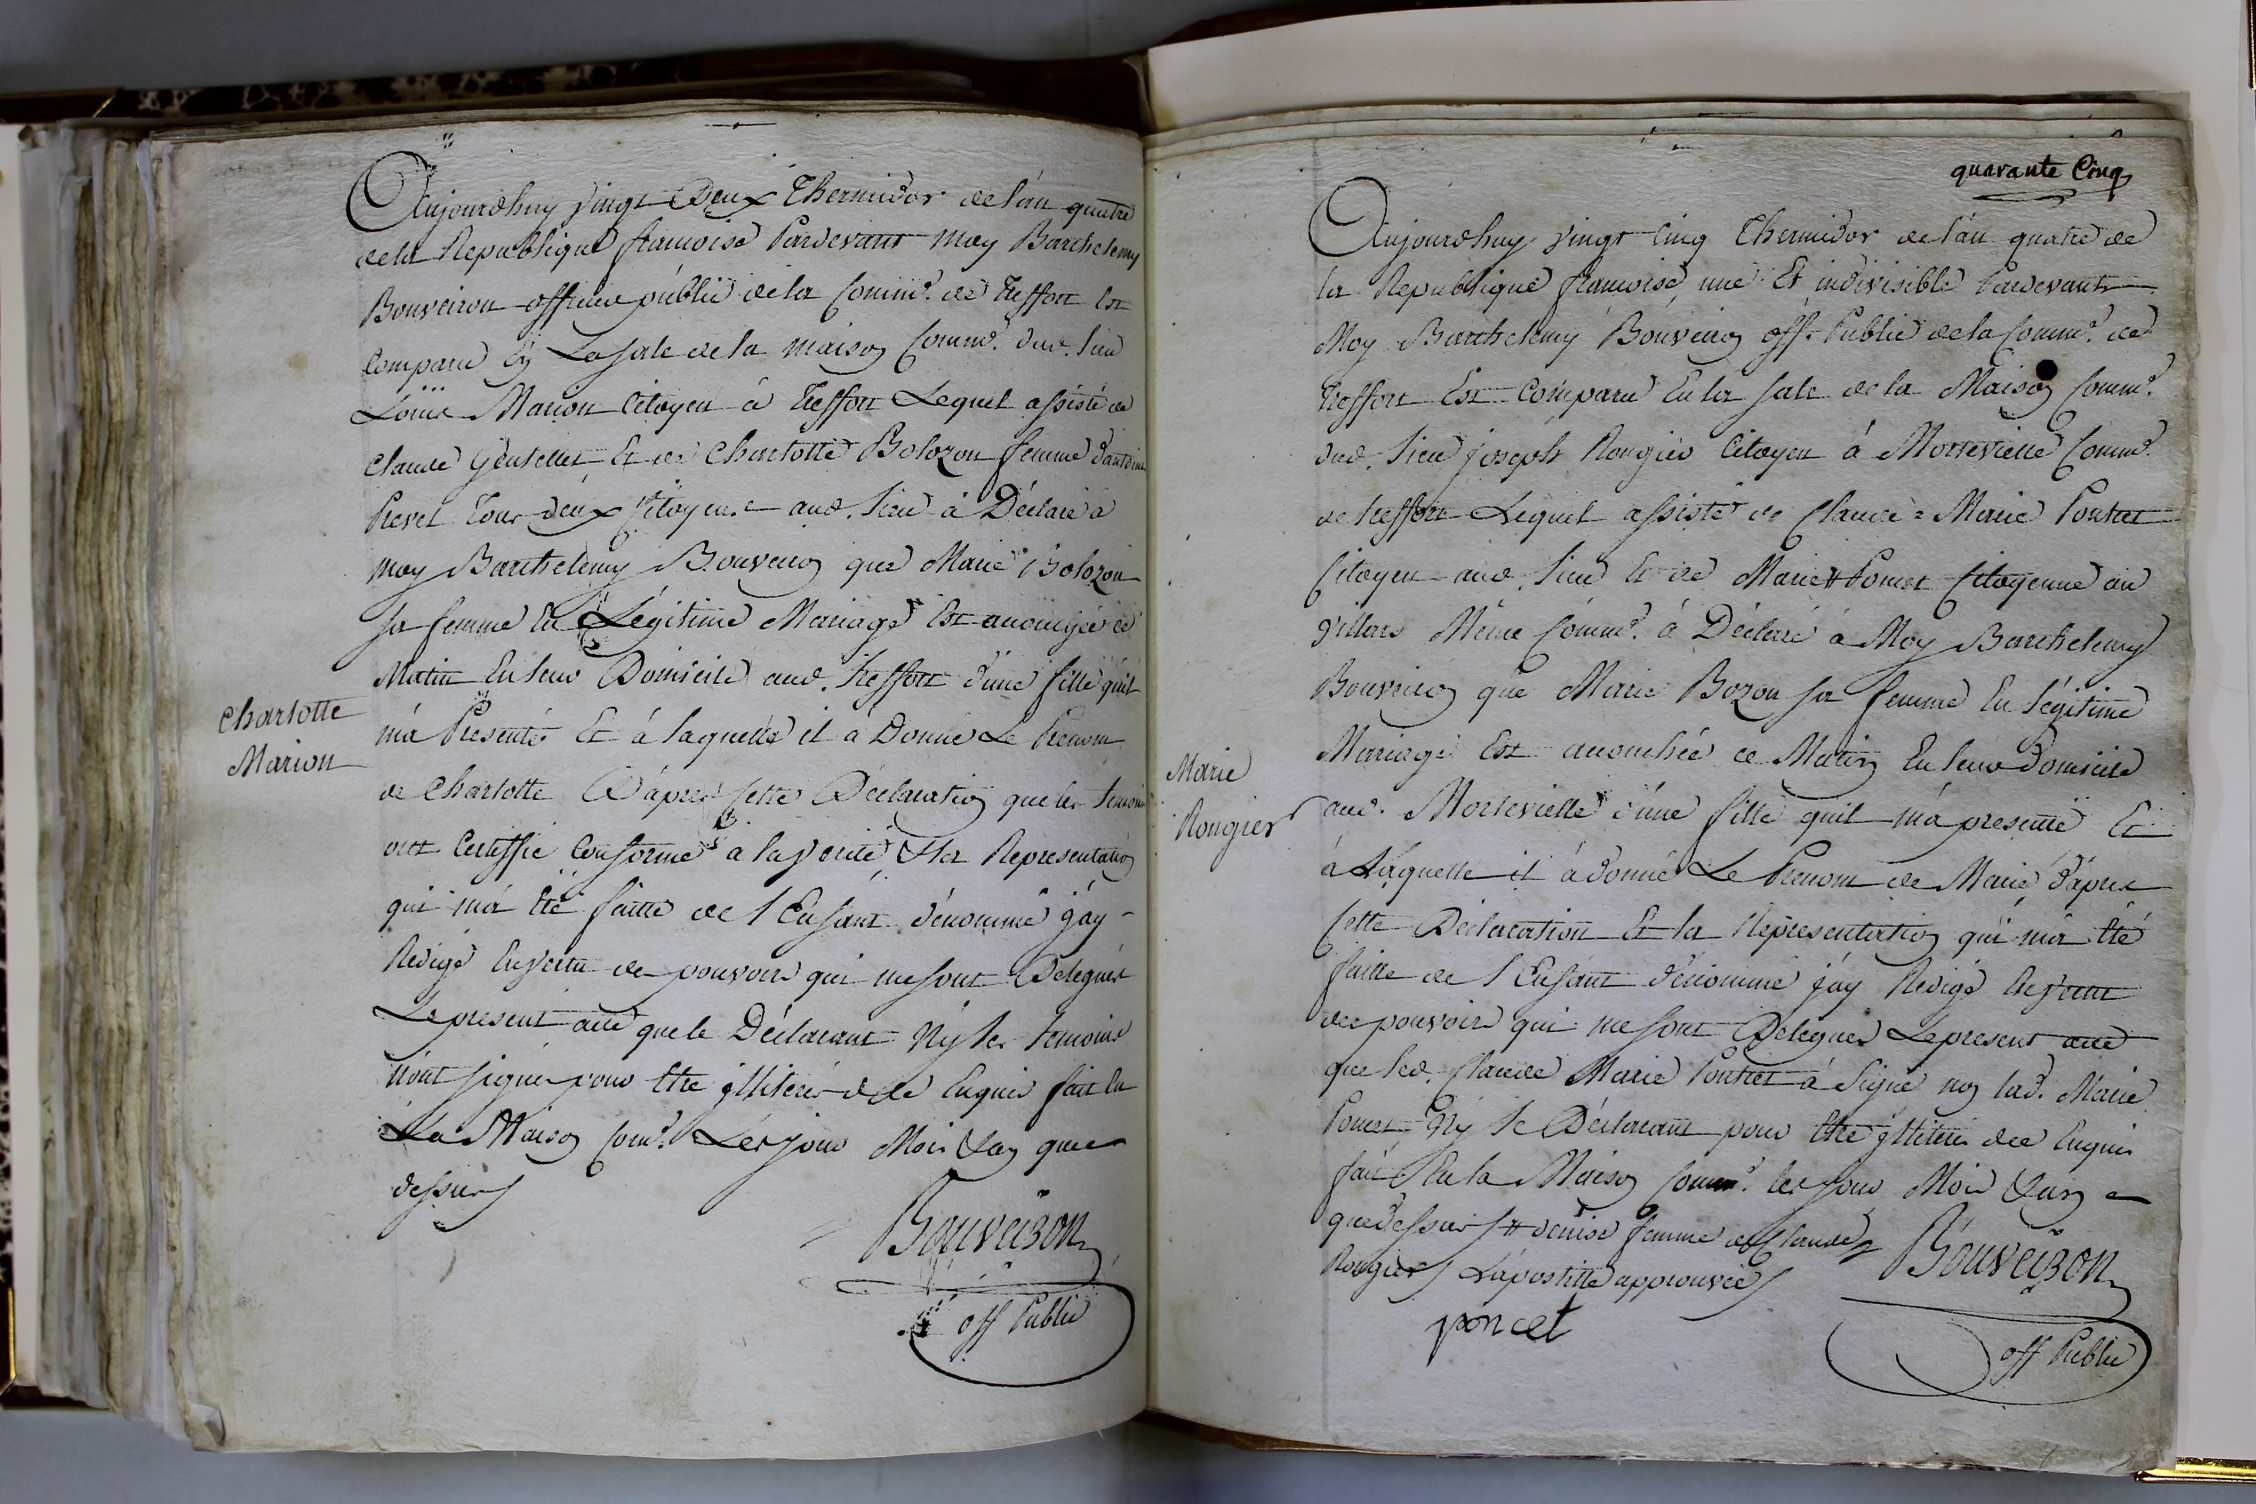 Aujourdhuy vingt Deux Thermidor de l'an quatre
de la Republique francoise Pardevant moy Barthelemy
Bouveiron officier public de la Comm.e de Treffort Est
Comparu En La sale de la maison Comm.e dud. lieu
Louis Marion Citoyen à Treffort Lequel assisté de
Claude Et de Charlotte Bolozon femme d'antoine
Prevel Tous deux Citoyens aud. lieu à Déclaré à
moy Barthelemy Bouveiron que Marie Bolozon
sa femme En Légitime Mariage Est accouchée ce
Matin En leur Domicile aud. Treffort d'une fille qu'il
Charlotte
Marion
m'a Presenté Et à laquelle il à Donné Le Prenom
de Charlotte D'après Cette Déclaration que les temoins
ont Certiffié Conforme a la verité & la Representation
qui m'a Eté faitte de l'Enfant dénommé j'ay
Redigé En vertu de pouvoirs qui me sont Delegués
Le present acte que le Déclarant Ny les temoins
n'ont signé pour Etre illiterés de ce Enquis fait En
La Maison Com.e Les jour Mois & an que
dessus
Bouveiron
off Public
quarante Cinq
Aujourdhuy vingt Cinq Thermidor de l'an quatre de
la Republique francoise, une Et indivisible Pardevant
Moy Barthelemy Bouveiron off.r Public de la Comm.e de
Treffort Est Comparu En la sale de la Maison Comm.e
dud. lieu joseph Rougier Citoyen à Montevielle Comm.e
de Treffort Lequel assisté de Claude = Marie Poncet
Citoyen aud. lieu Et de Marie # Poncet Citoyenne au
villars Même Comm.e à Déclaré à Moy Barthelemy
Bouveiron que Marie Bozon sa femme En légitime
Mariage Est accouchée ce Matin En leur domicile
Marie
Rougier
aud. Montevielle d'une fille qu'il m'a presenté Et
à Laquelle il à donné Le Prenom de Marie d'après
Cette Déclaration Et la Representation qui m'a Eté
faitte de l'Enfant dénommé j'ay Redigé En vertu
des pouvoirs qui me sont Delegués Le present acte
que led. Claude Marie Poncet à Signé non lad. Marie
Poncet Ny le Déclarant pour Etre illiterés de ce Enquis
fait En la Maison Comm.e les jour Mois & an
que dessus # denise femme de Claude
Rougier L'apostille approuvée
Bouveiron
poncet
off Public